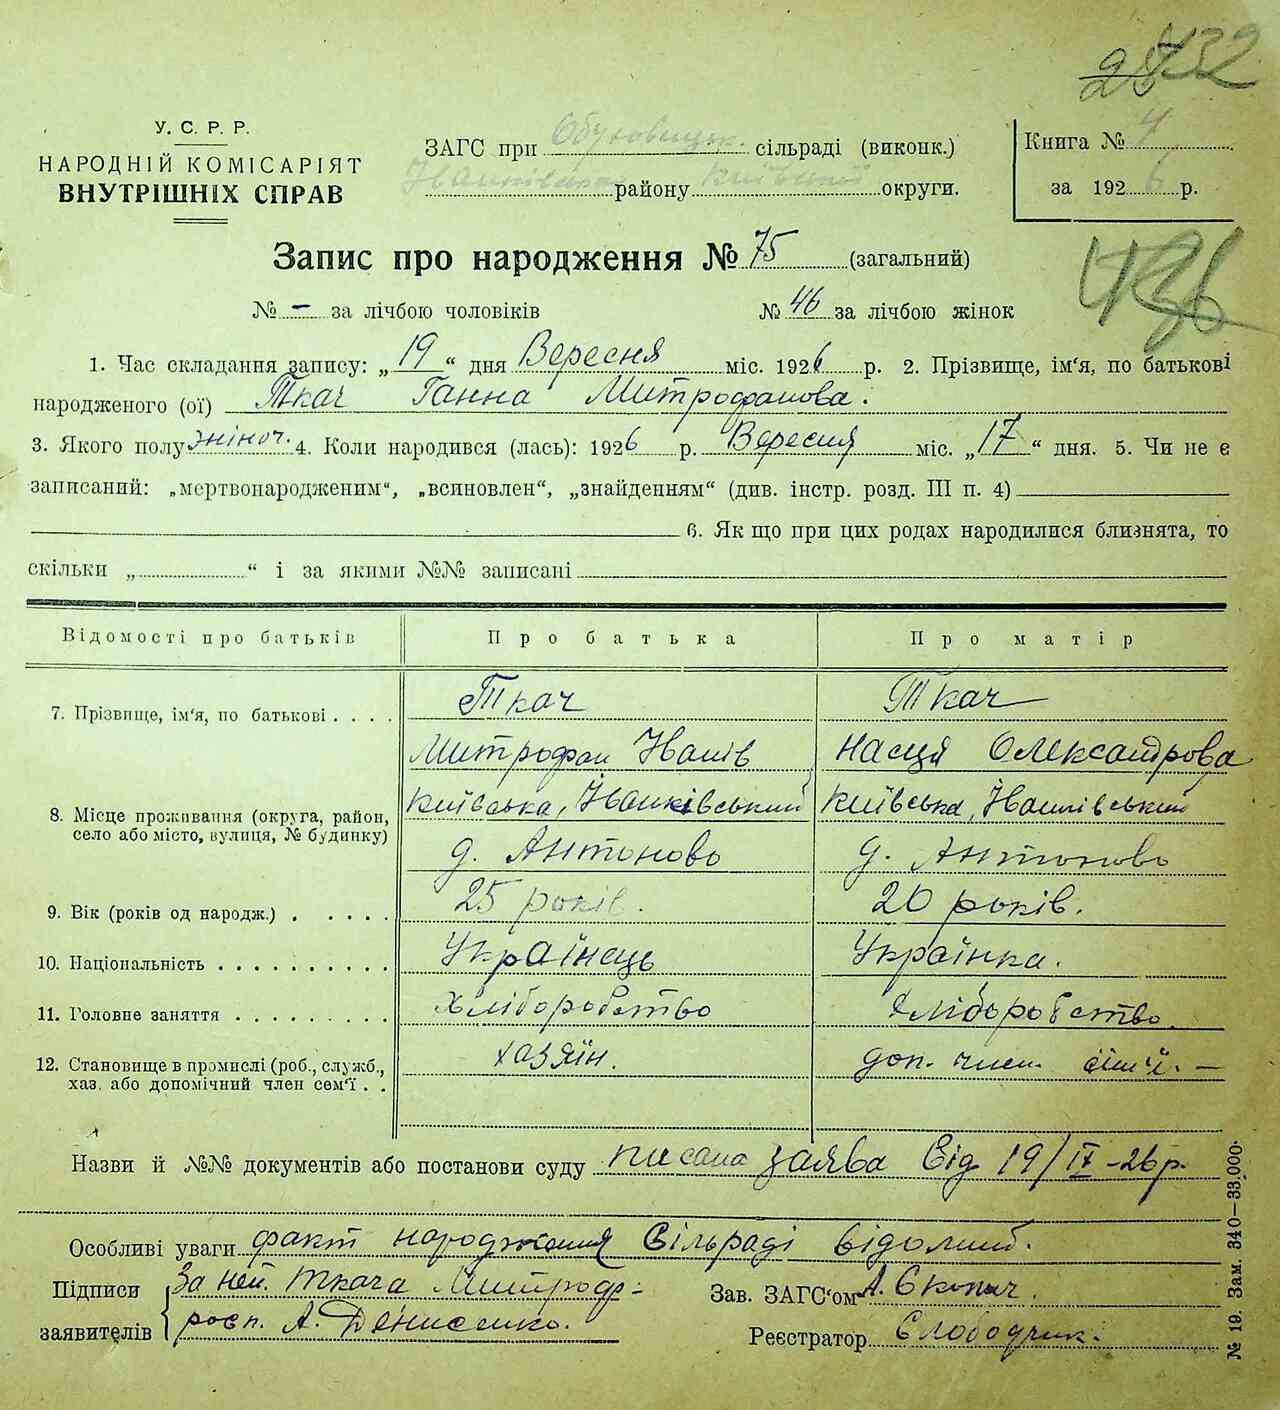 432
У. С. Р. Р.
НАРОДНІЙ КОМІСАРІЯТ
ВНУТРІШНІХ СПРАВ
ЗАГС при Обуховицьк. сільраді (виконк.)
Іванківськ району Київської округи.
Книга № 4
за 1926 р.
Запис про народження № 75 (загальний)
436
№ – за лічбою чоловіків № 46 за лічбою жінок
1. Час складання запису: „19“ дня Вересня міс. 1926 р. 2. Прізвище, ім'я, по батькові
народженого (ої) Ткач Ганна Митрофанова.
3. Якого полу жіноч. 4. Коли народився (лась): 1926 р. Вересня міс. „17“ дня. 5. Чи не є
записаний: „мертвонародженим“, „всиновлен“, „знайденням“ (див. інстр. розд. III п. 4)
6. Як що при цих родах народилися близнята, то
скільки „ “ і за якими №№ записані
Відомості про батьків Про батька Про матір
7. Прізвище, ім'я, по батькові . . . . Ткач Ткач
Митрофан Іванів Насця Олександрова
8. Місце проживання (округа, район, село або місто, вулиця, № будинку) Київська, Іванківський Київська, Іванківський
д. Антоново д. Антоново
9. Вік (років од народж.) . . . . . 25 років. 20 років.
10. Національність . . . . . . . . . . Українець Українка.
11. Головне заняття . . . . . . . . . Хліборобство Хліборобство
12. Становище в промислі (роб., служб., хаз. або допомічний член сем'ї . . хазяїн. доп. член. сім'ї. –
Назви й №№ документів або постанови суду писана заява від 19/IX–26 р.
Особливі уваги факт народження Сільраді відомий.
Підписи За неп. Ткача Митроф-
заявителів росп. А. Денисенко.
Зав. ЗАГС'ом А.
Реєстратор Слободчик.
№ 19. Зам. 340—33.000.